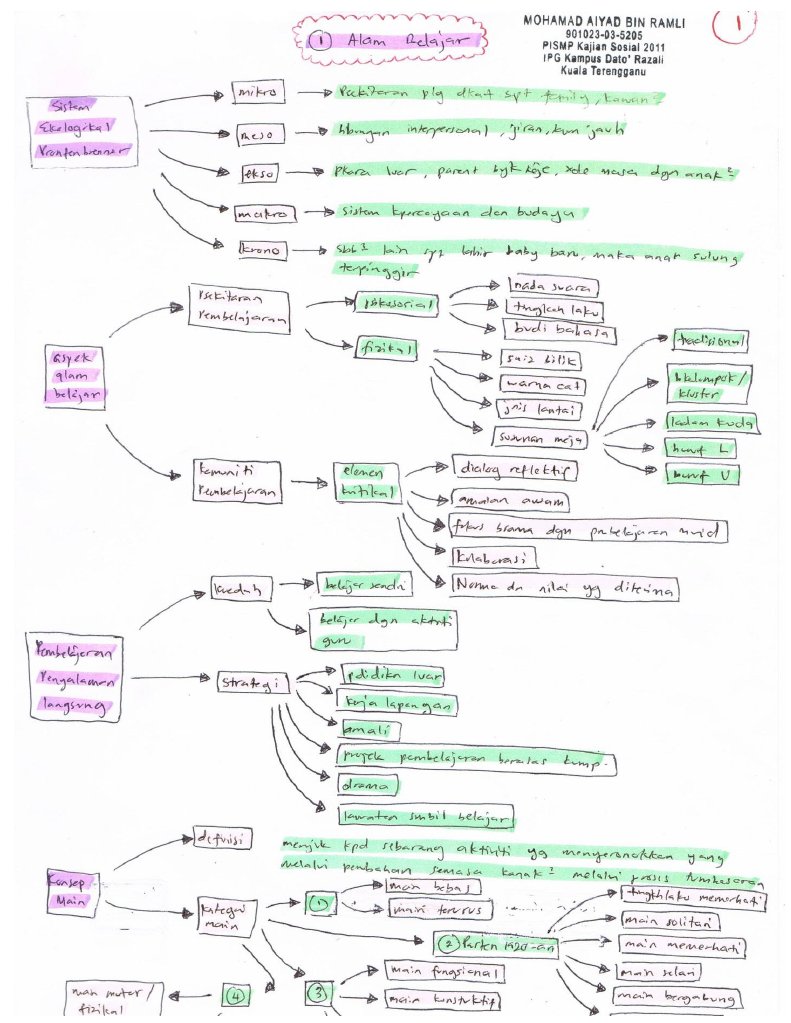 MOHAMAD AIYAD BIN RAMLI
901023-03-5205
PISMP Kajian Sosial 2011
IPG Kampus Dato' Razali
Kuala Terengganu
1
① Alam Belajar
Sistem
Ekologikal
Bronfenbrenner
mikro
Psekitaran plg dkat spt family, kawan²
meso
hbungan interpersonal, jiran, kwn jauh
ekso
Pkara luar, parent byk koje, xde masa dgn anak²
makro
Sistem kpercayaan dan budaya
krono
sbb² lain spt lahir baby baru, maka anak sulung
terpinggir
Psekitaran
Pembelajaran
psikososial
nada suara
tingkah laku
budi bahasa
fizikal
saiz bilik
warna cat
jnis lantai
susunan meja
tradisional
bkelompok/
kluster
ladam kuda
huruf L
huruf U
Aspek
alam
belajar
Komuniti
Pembelajaran
elemen
kritikal
dialog reflektif
amalan awam
fokus brsama dgn pmbelajaran murid
kolaborasi
Norma dn nilai yg diterima
Pembelajaran
Pengalaman
langsung
kaedah
belajar sendiri
belajar dgn aktviti
guru
Strategi
pdidikn luar
kerja lapangan
amali
projek pembelajaran beralas kump.
drama
lawatan smbil belajar
Konsep
Main
definisi
merujuk kpd sebarang aktiviti yg menyeronokkan yang
melalui perubahan semasa kanak² melalui proses tumbesaran
Kategori
main
①
main bebas
main terurus
② Parten 1920-an
tingkhlaku memerhati
main solitari
main memerhati
main selari
main bergabung
③
main fungsional
main konstruktif
④
main motor/
fizikal